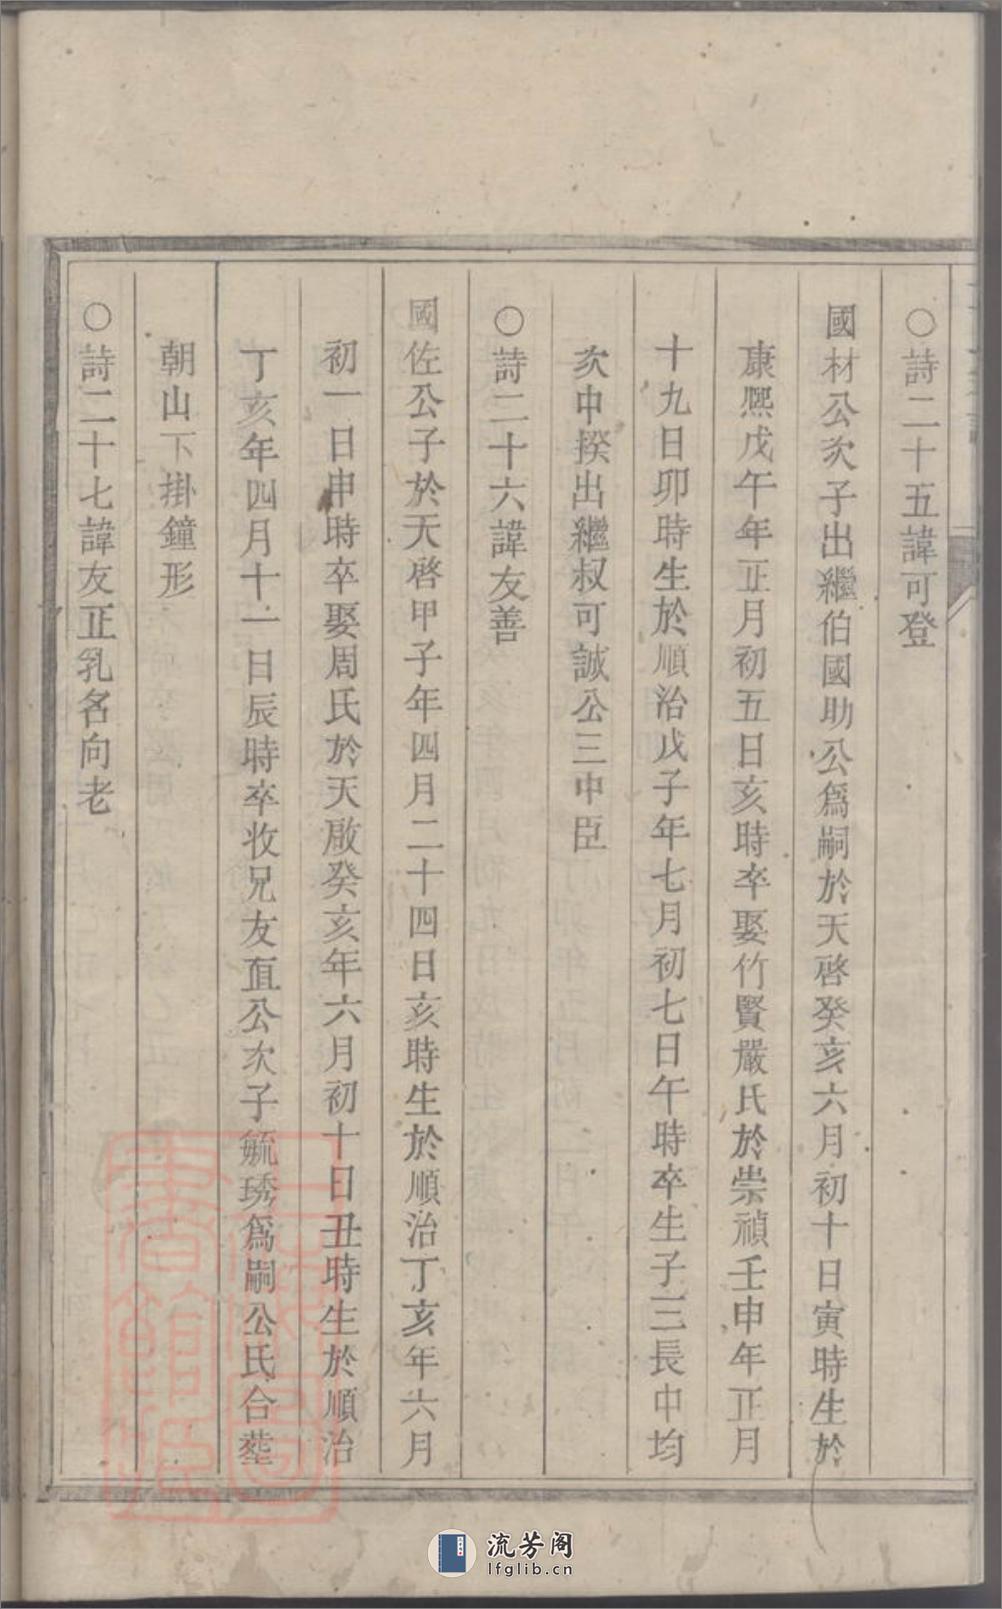 ○詩二十五諱可登
國材公次子出繼伯國助公爲嗣於天啓癸亥六月初十日寅時生於
康熙戊午年正月初五日亥時卒娶竹賢嚴氏於崇禎壬申年正月
十九日卯時生於順治戊子年七月初七日午時卒生子三長中均
次中揆出繼叔可誠公三中臣
○詩二十六諱友善
國佐公子於天啓甲子年四月二十四日亥時生於順治丁亥年六月
初一日申時卒娶周氏於天啟癸亥年六月初十日丑時生於順治
丁亥年四月十一日辰時卒收兄友直公次子毓琇爲嗣公氏合塟
朝山下掛鐘形
○詩二十七諱友正乳名向老
流芳阁
lfglib.cn